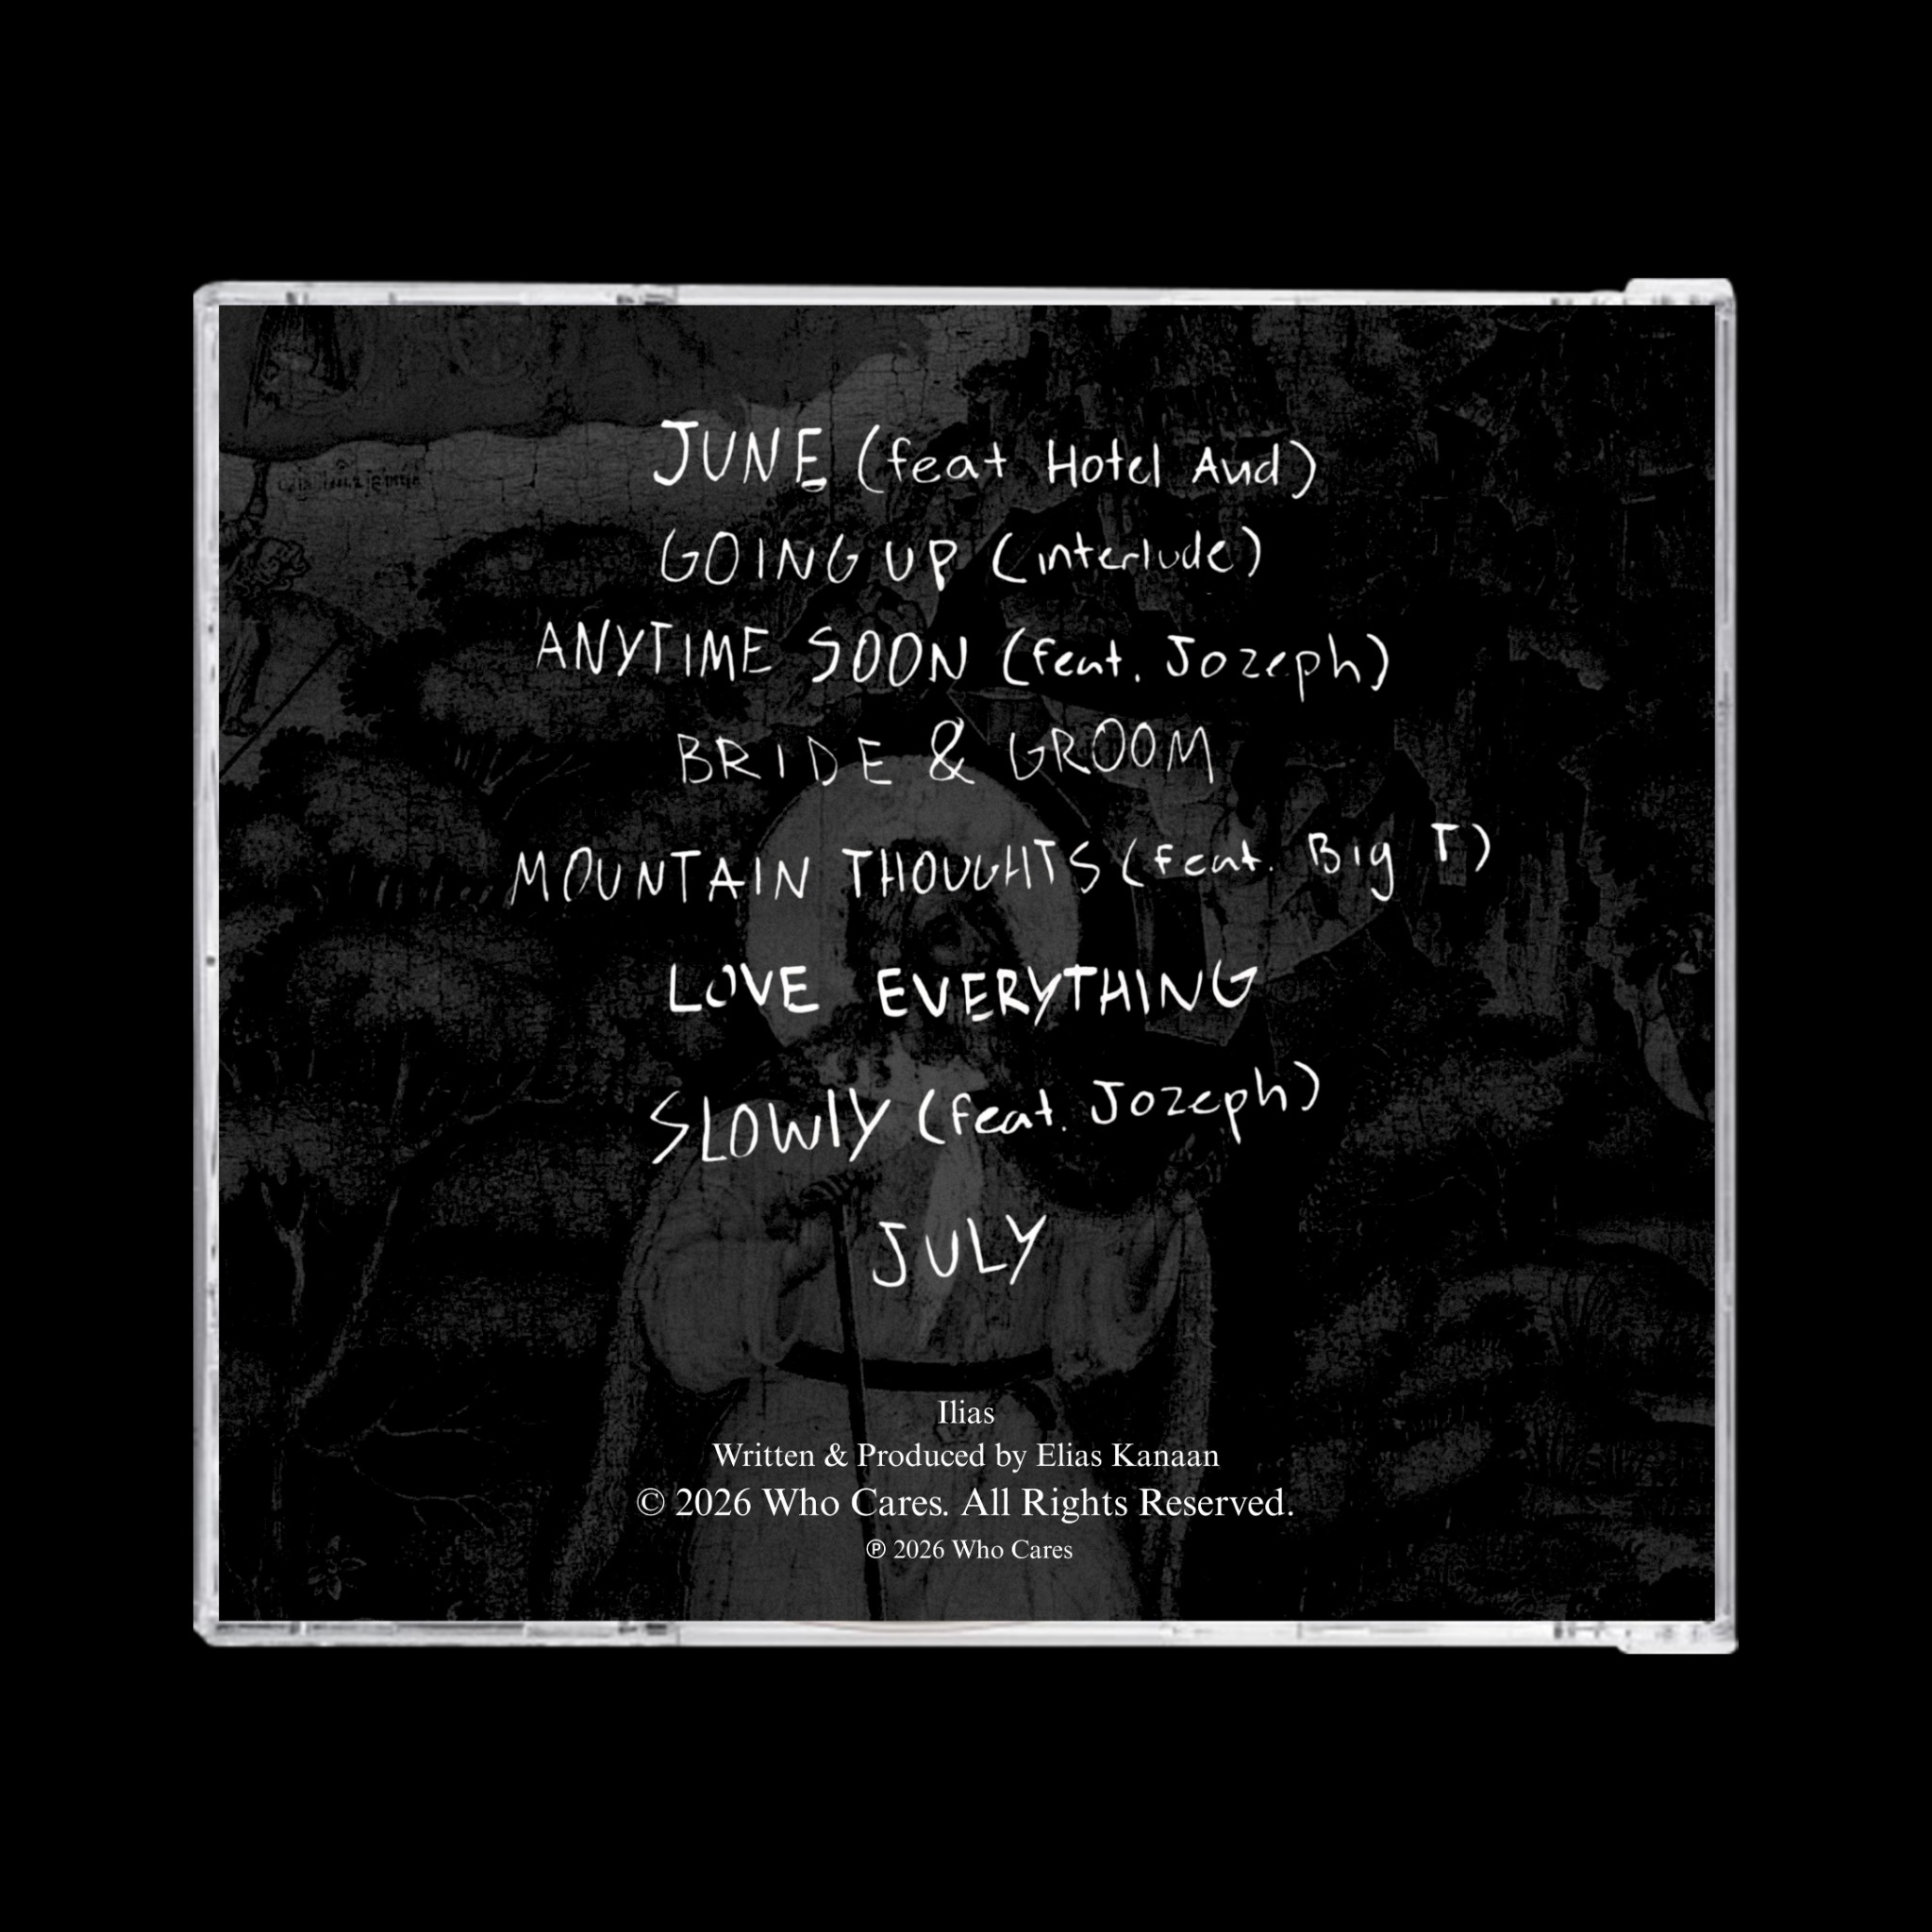 JUNE (feat Hotel Aud)
GOING UP (interlude)
ANYTIME SOON (feat. Jozeph)
BRIDE & GROOM
MOUNTAIN THOUGHTS (feat. Big T)
LOVE EVERYTHING
SLOWLY (feat. Jozeph)
JULY
Ilias
Written & Produced by Elias Kanaan
© 2026 Who Cares. All Rights Reserved.
℗ 2026 Who Cares